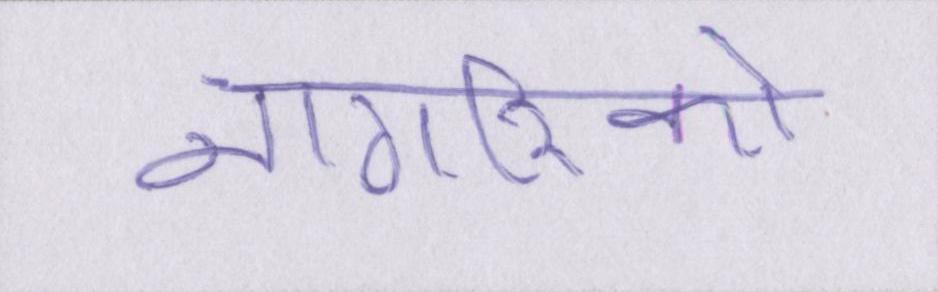 नागरिको